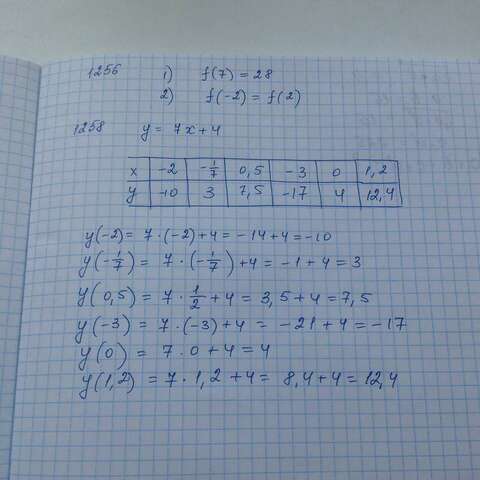 1256 1) f(7) = 28
2) f(-2) = f(2)
1258 y = 7x+4
x -2 -1/7 0,5 -3 0 1,2
y -10 3 7,5 -17 4 12,4
y(-2) = 7·(-2)+4 = -14+4 = -10
y(-1/7) = 7·(-1/7)+4 = -1+4 = 3
y(0,5) = 7·1/2+4 = 3,5+4 = 7,5
y(-3) = 7·(-3)+4 = -21+4 = -17
y(0) = 7·0+4 = 4
y(1,2) = 7·1,2+4 = 8,4+4 = 12,4